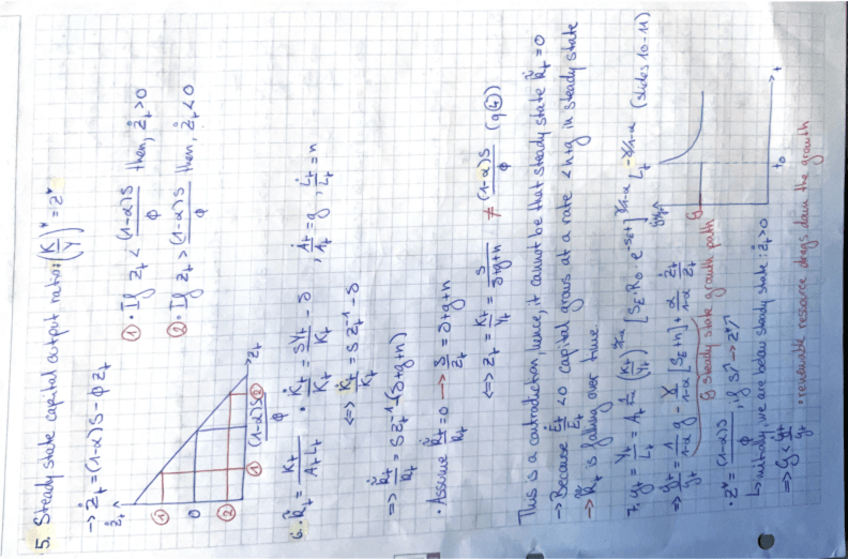 5. Steady state capital output ratio: (K/Y)* = z*
→ ż_t = (1-α)s - φ z_t
ż_t
① 0 ②
① (1-α)s/φ ②
z_t
① · If z_t < (1-α)s/φ then, ż_t > 0
② · If z_t > (1-α)s/φ then, ż_t < 0
6. k̃_t = K_t/(A_t L_t) · K̇_t/K_t = sY_t/K_t - δ , Ȧ_t/A_t = g , L̇_t/L_t = n
<=> K̇_t/K_t = s z_t^-1 - δ
=> k̃_t/k̃_t = s z_t^-1 - (δ+g+n)
· Assume k̃_t/k̃_t = 0 → s/z_t = δ+g+n
<=> z_t = K_t/Y_t = s/(δ+g+n) ≠ (1-α)s/φ (q④)
This is a contradiction, hence, it cannot be that steady state k̃_t = 0
→ Because Ė_t/E_t < 0 capital grows at a rate < n+g in steady state
→ k̃_t is falling over time
7. y_t = Y_t/L_t = A_t^(1/1-α) (K_t/Y_t)^(α/1-α) [s_E · R_0 · e^(-s_E t)]^(γ/1-α) L_t^(-γ/1-α) (slides 10-11)
=> ẏ_t/y_t = 1/(1-α) g - γ/(1-α) [s_E + n] + α/(1-α) ż_t/z_t
g steady state growth path
· z* = (1-α)s/φ , if s↗ → z*↗
↳ initially, we are below steady state : ż_t > 0
=> g < ẏ_t/y_t
g
t_0
t
· renewable resource drags down the growth